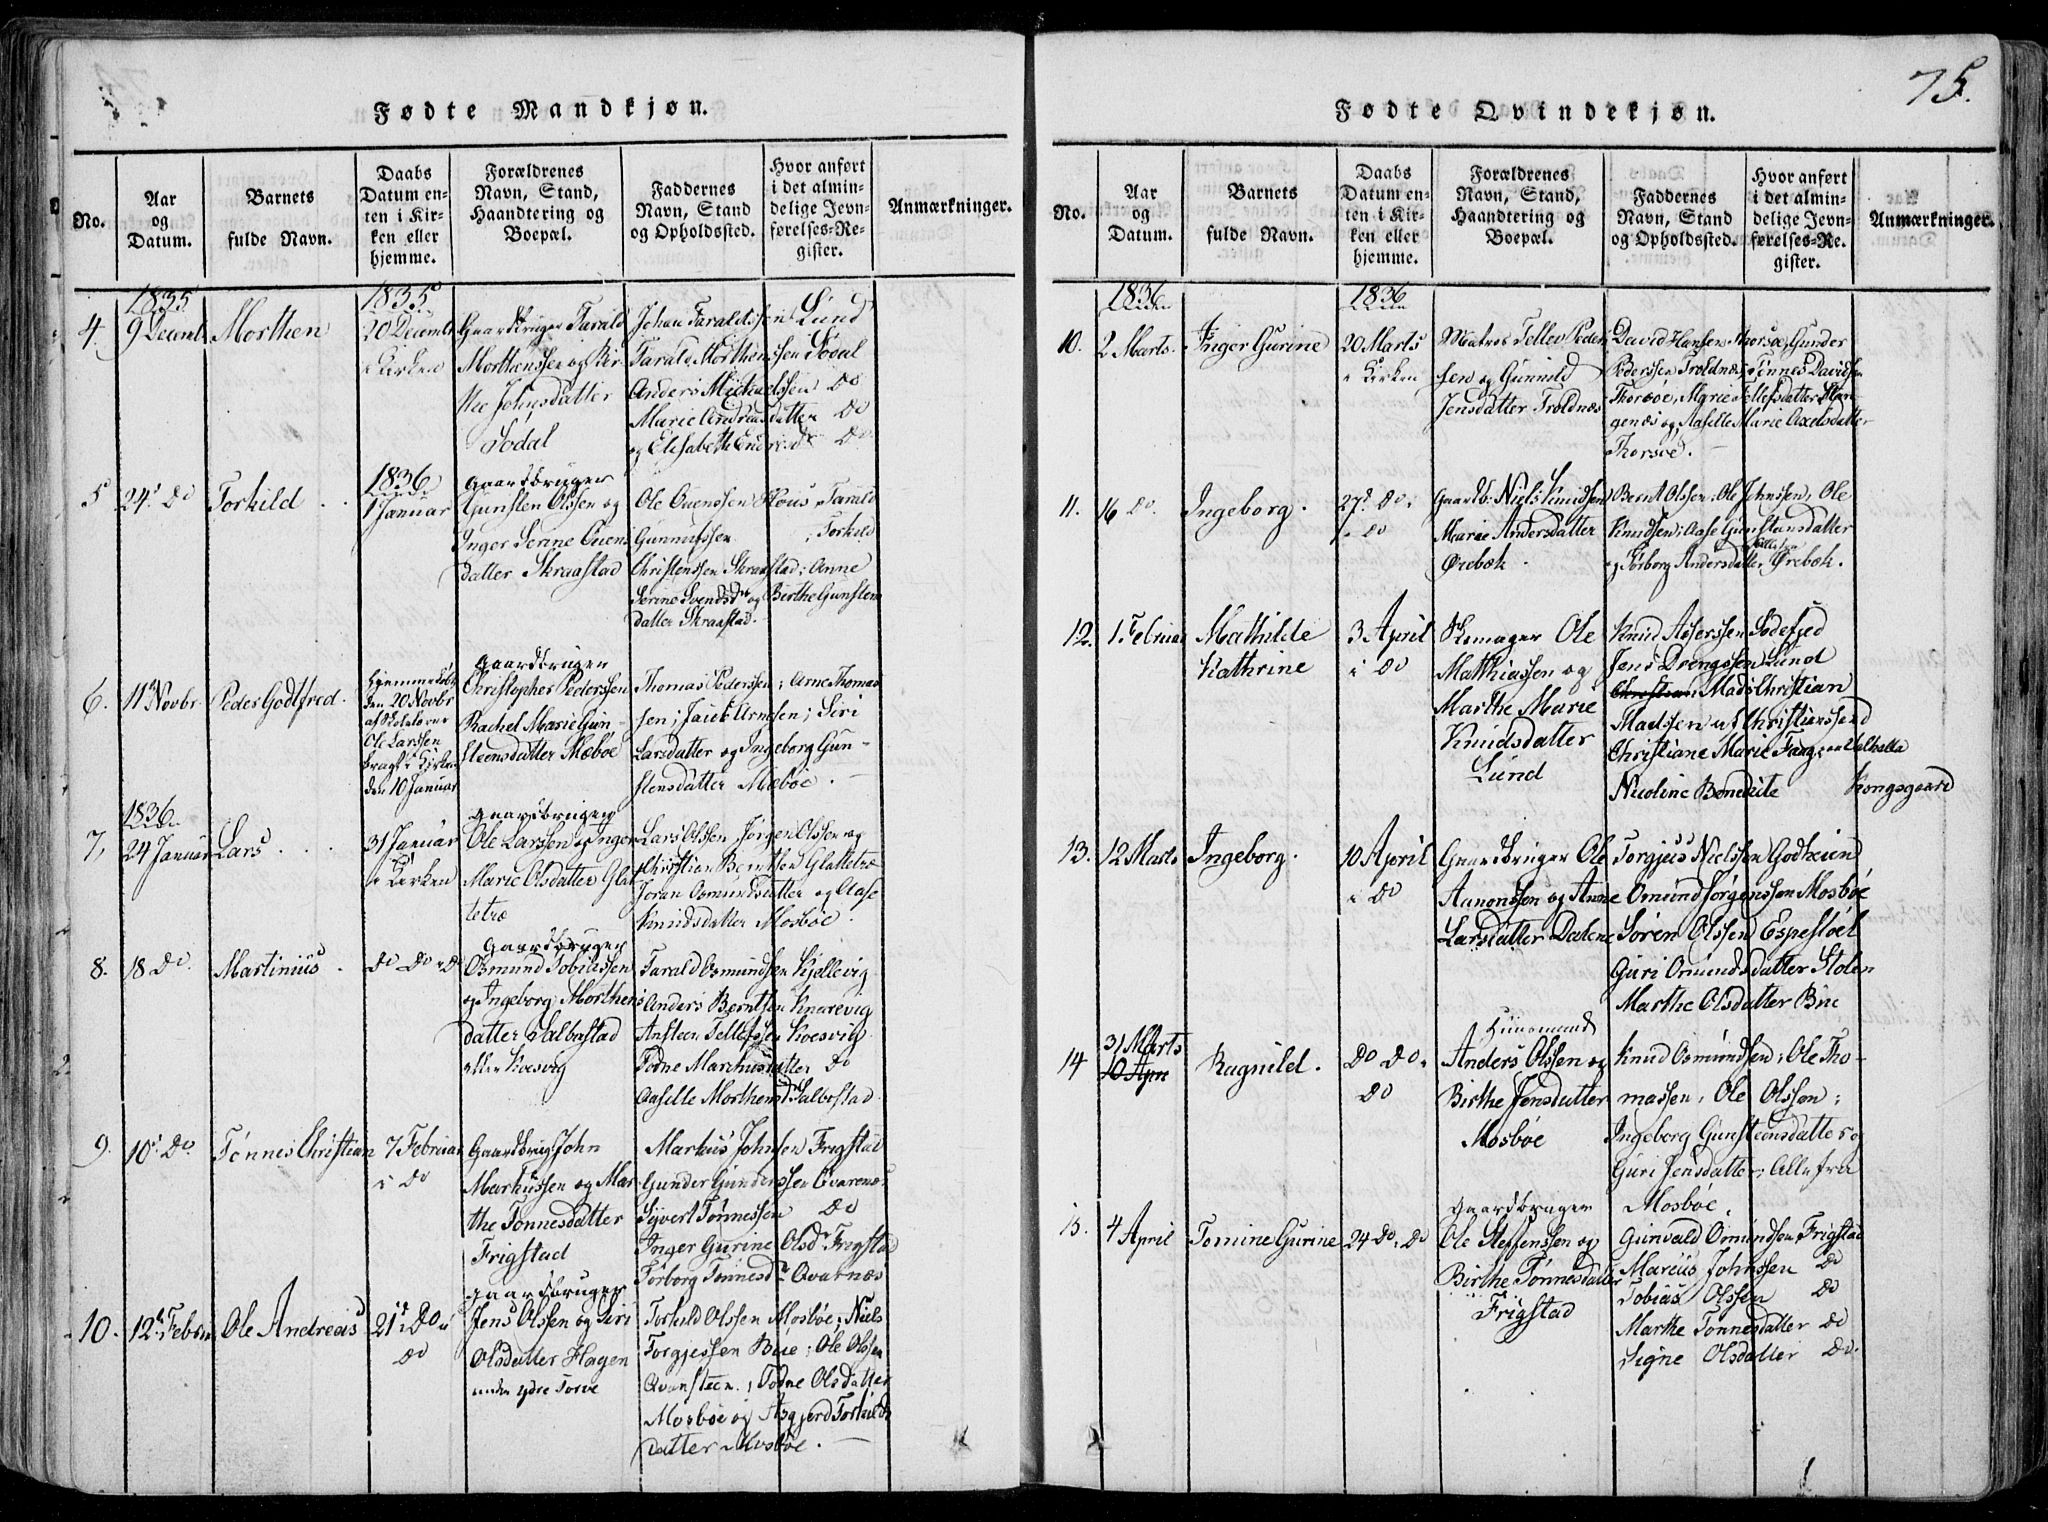 75.
Fødte Mandkjøn.
No.
Aar
og
Datum.
Barnets
fulde Navn.
Daabs
Datum en-
ten i Kir-
ken eller
hjemme.
Forældrenes
Navn, Stand,
Haandtering og
Boepæl.
Faddernes
Navn, Stand
og Opholdssted.
Hvor anført
i det almin-
delige Jevn-
førelses-Re-
gister.
Anmærkninger.
1835
4.
9 Decmb
Morthen
1835
20 Decmbr
i Kirken
Gaardbruger Tarald
Morthenssen og Bir-
the Johnsdatter
Sødal
Johan Taraldssen Lund
Tarald Morthenssen Sødal
Anders Michaelssen Do
Marie Andreasdatter Do
og Elisabeth Do
5
24 Do
Torkild
1836
1 Januar
Gaardbruger
Gunsten Olssen og
Inger Serine Ouens
datter Skraastad
Ole Ouenssen Flous; Tarald
Gunnufssen; Torkild
Christenssen Skraastad; Anne
Serine Svendsd og Birthe Gunsten
datter Skraastad.
6.
11 Novbr
Peder Godtfred.
Hjemmedøbt
den 20 Novbr
af Skolelærer
Ole Larssen
bragt i Kirken
den 10 Januar
Gaardbruger
Christopher Pederssen
Rachel Marie Gun-
steensdatter Mæbøe
Thomas Pederssen; Arne Thomas
sen; Arnsen; Siri
Larsdatter og Ingeborg Gun-
stensdatter Mæbøe.
1836
7,
24 Januar
Lars
31 Januar
i Kirken
Gaardbruger
Ole Larssen og Inger
Marie Olsdatter Glat-
tetræ
Lars Olssen Jørgen Olssen og
Christian Berntsen Glattetræ
Joran Osmundsdatter og Aase
Knudsdatter Mosbøe.
8.
18 Do
Martinius
Do Do i Do
Gaardbruger
Osmund Tobiassen
og Ingeborg Morthens
datter Salbostad
eller Koesvig
Tarald Osmundsen Kjellevig
Anders Berntsen Knarevig
Ansteen Tellefssen Koesvig
Todne Marchusdatter Do
Aaselle Morthensd Salbostad.
9.
10 Do.
Tønnes Christian
7 Februar
i Do
Gaardbrug John
Markussen og Mar-
the Tønnesdatter
Frigstad
Markus Johnsen Frigstad
Gunder Gunderssen Qvarenes
Syvert Tønnessen Do
Inger Gurine Olsd Frigstad
Torborg Tønnesd Qvarnæs
10.
12 Februar
Ole Andreas
21 Do i
Do
Gaardbruger
Jens Olssen og Siri
Olsdatter Hagen
under ydre Torve
Torkild Olssen Mosbøe; Niels
Torgjessen Bue; Ole Olssen
Qvansteen; Todne Olsdatter
Mosbøe og Asgjerd Torkilds
datter Mosbøe.
Fødte Qvindekjøn.
No.
Aar
og
Datum.
Barnets
fulde Navn.
Daabs
Datum en-
ten i Kir-
ken eller
hjemme.
Forældrenes
Navn, Stand,
Haandtering og
Boepæl.
Faddernes
Navn, Stand
og Opholdssted.
Hvor anført
i det almin-
delige Jevn-
førelses-Re-
gister.
Anmærkninger.
1836
10.
2 Marts.
Inger Gurine
1836
20 Marts
i Kirken
Matros Tellev Peder
sen og Gunnild
Jensdatter Troldnæs
David Hansen Thorsøe, Gunder
Pederssen Troldnæs; Tønnes Davidsen
Thorsøe, Marie Tellefsdatter Stan-
genæs og Aaselle Marie Axelsdatter
Thorsøe.
11.
16 Do.
Ingeborg.
27 Do
i Do
Gaardb: Niels Knudsen
Marie Andersdatter
Ørebæk
Bernt Olssen; Ole Johnssen; Ole
Knudssen; Aase Gunstansdatter
og Torborg Andersdatter, Ørebæk.
12.
1 Februar
Mathilde
Kathrine
3 April
i Do
Skomager Ole
Matthiassen og
Marthe Marie
Knudsdatter
Lund
Knud Asserssen Sodefjed
Jens Drengssen Lund
Mads Christian
Madssen af Christianssand
Christiane Marie Valhalla
Nicoline Kongsgaard
13.
12 Marts
Ingeborg.
10 April
i Do
Gaardbruger Ole
Aanonssen og Anne
Larsdatter Dalene
Torgjus Nielssen Godheien
Omund Jørgenssen Mosbøe
Søren Olssen Espestøel
Guri Omundsdatter Stolen
Marthe Olsdatter Bue
14
31 Marts
10 Apri
Ragnild.
Do Do i
Do
Huusmand
Anders Olssen og
Birthe Jensdatter
Mosbøe
Knud Osmundsen; Ole Tho-
massen; Ole Olsson;
Ingeborg Gunsteensdatter og
Guri Jensdatter, Alle fra
Mosbøe.
15.
4 April
Tomine Gurine
24 Do i Do
Gaardbruger
Ole Steffenssen og
Birthe Tønnesdatter
Frigstad
Gunvald Omundsen Frigstad
Marcus Johnssen Do
Tobias Olssen Do
Marthe Tønnesdatter Do
Signe Olsdatter Do.